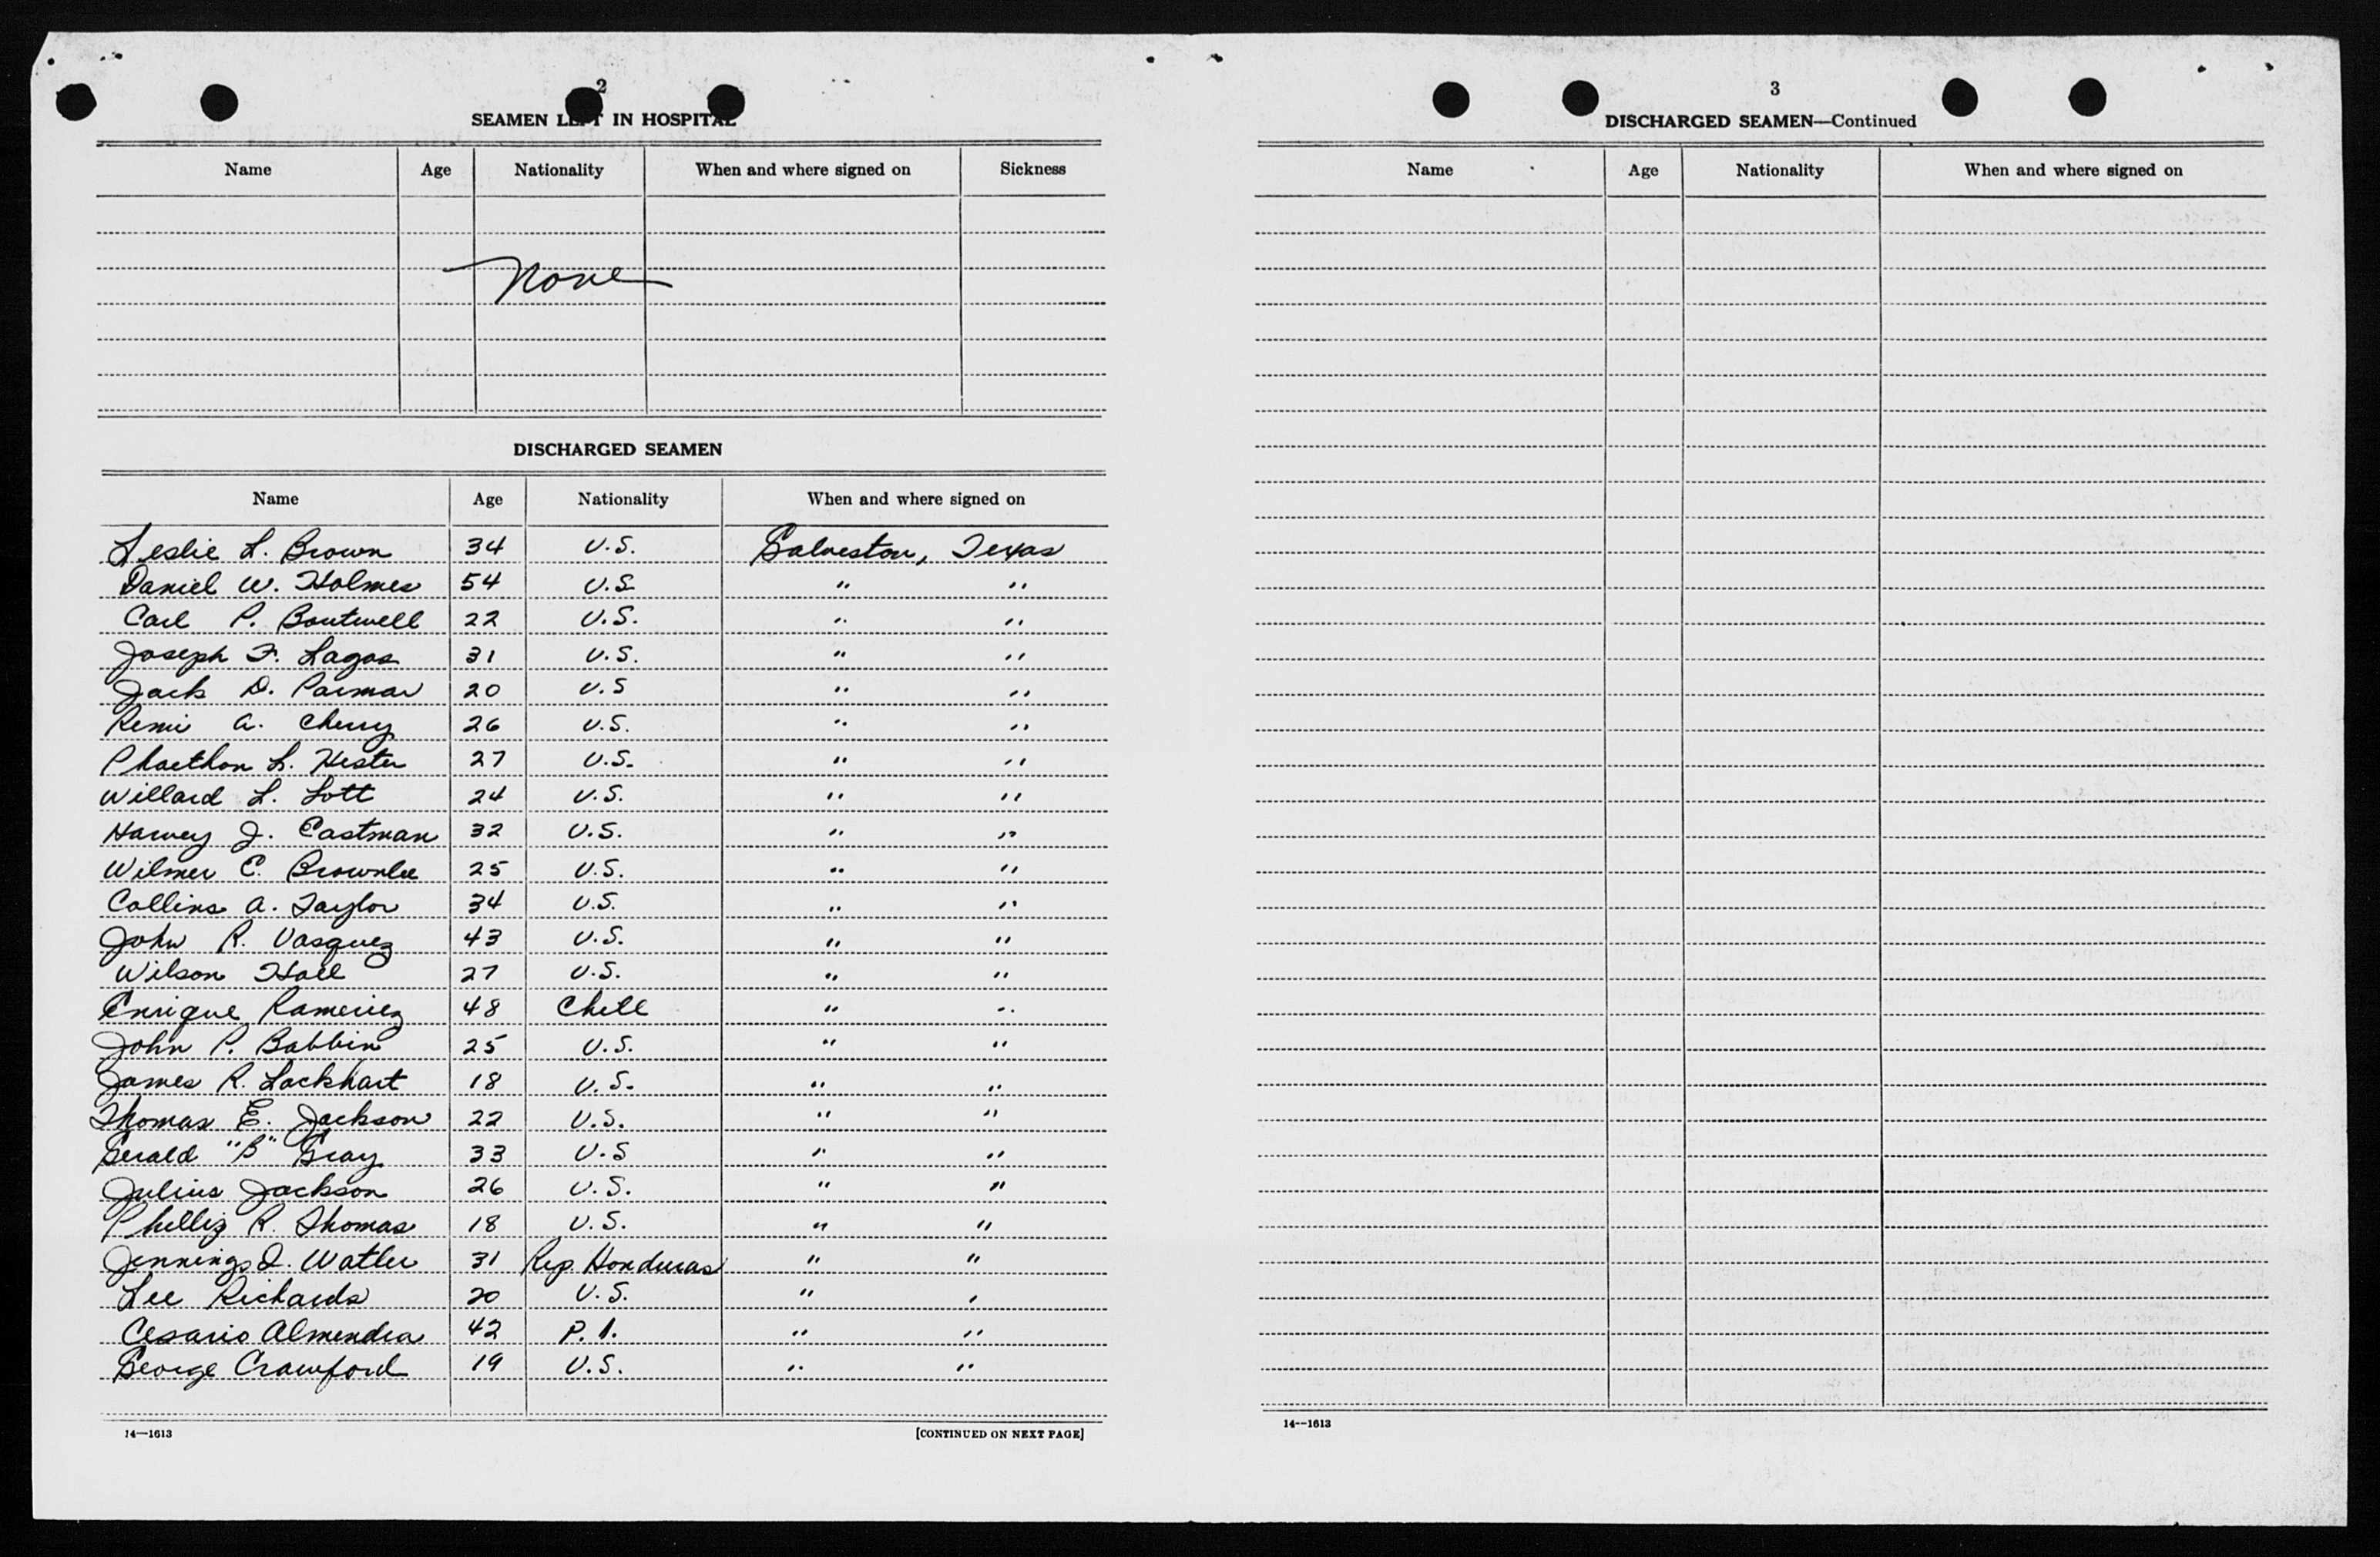 2
SEAMEN LEFT IN HOSPITAL
Name Age Nationality When and where signed on Sickness
None
DISCHARGED SEAMEN
Name Age Nationality When and where signed on
Leslie L. Brown 34 U.S. Galveston, Texas
Daniel W. Holmes 54 U.S. " "
Carl P. Boutwell 22 U.S. " "
Joseph F. Lagos 31 U.S. " "
Jack D. Parmar 20 U.S " "
Remi A. Cherry 26 U.S. " "
Phaethon L. Hester 27 U.S. " "
Willard L. Lott 24 U.S. " "
Harvey J. Eastman 32 U.S. " "
Wilmer E. Brownlee 25 U.S. " "
Collins A. Taylor 34 U.S. " "
John R. Vasquez 43 U.S. " "
Wilson Hall 27 U.S. " "
Enrique Rameriez 48 Chile " "
John P. Babbin 25 U.S. " "
James R. Lockhart 18 U.S. " "
Thomas E. Jackson 22 U.S. " "
Gerald "B" Gray 33 U.S " "
Julius Jackson 26 U.S. " "
Phillip R. Thomas 18 U.S. " "
Jennings I. Watler 31 Rep. Honduras " "
Lee Richards 20 U.S. " "
Cesario Almendra 42 P.I. " "
George Crawford 19 U.S. " "
14—1613 [CONTINUED ON NEXT PAGE]
3
DISCHARGED SEAMEN—Continued
Name Age Nationality When and where signed on
14—1613